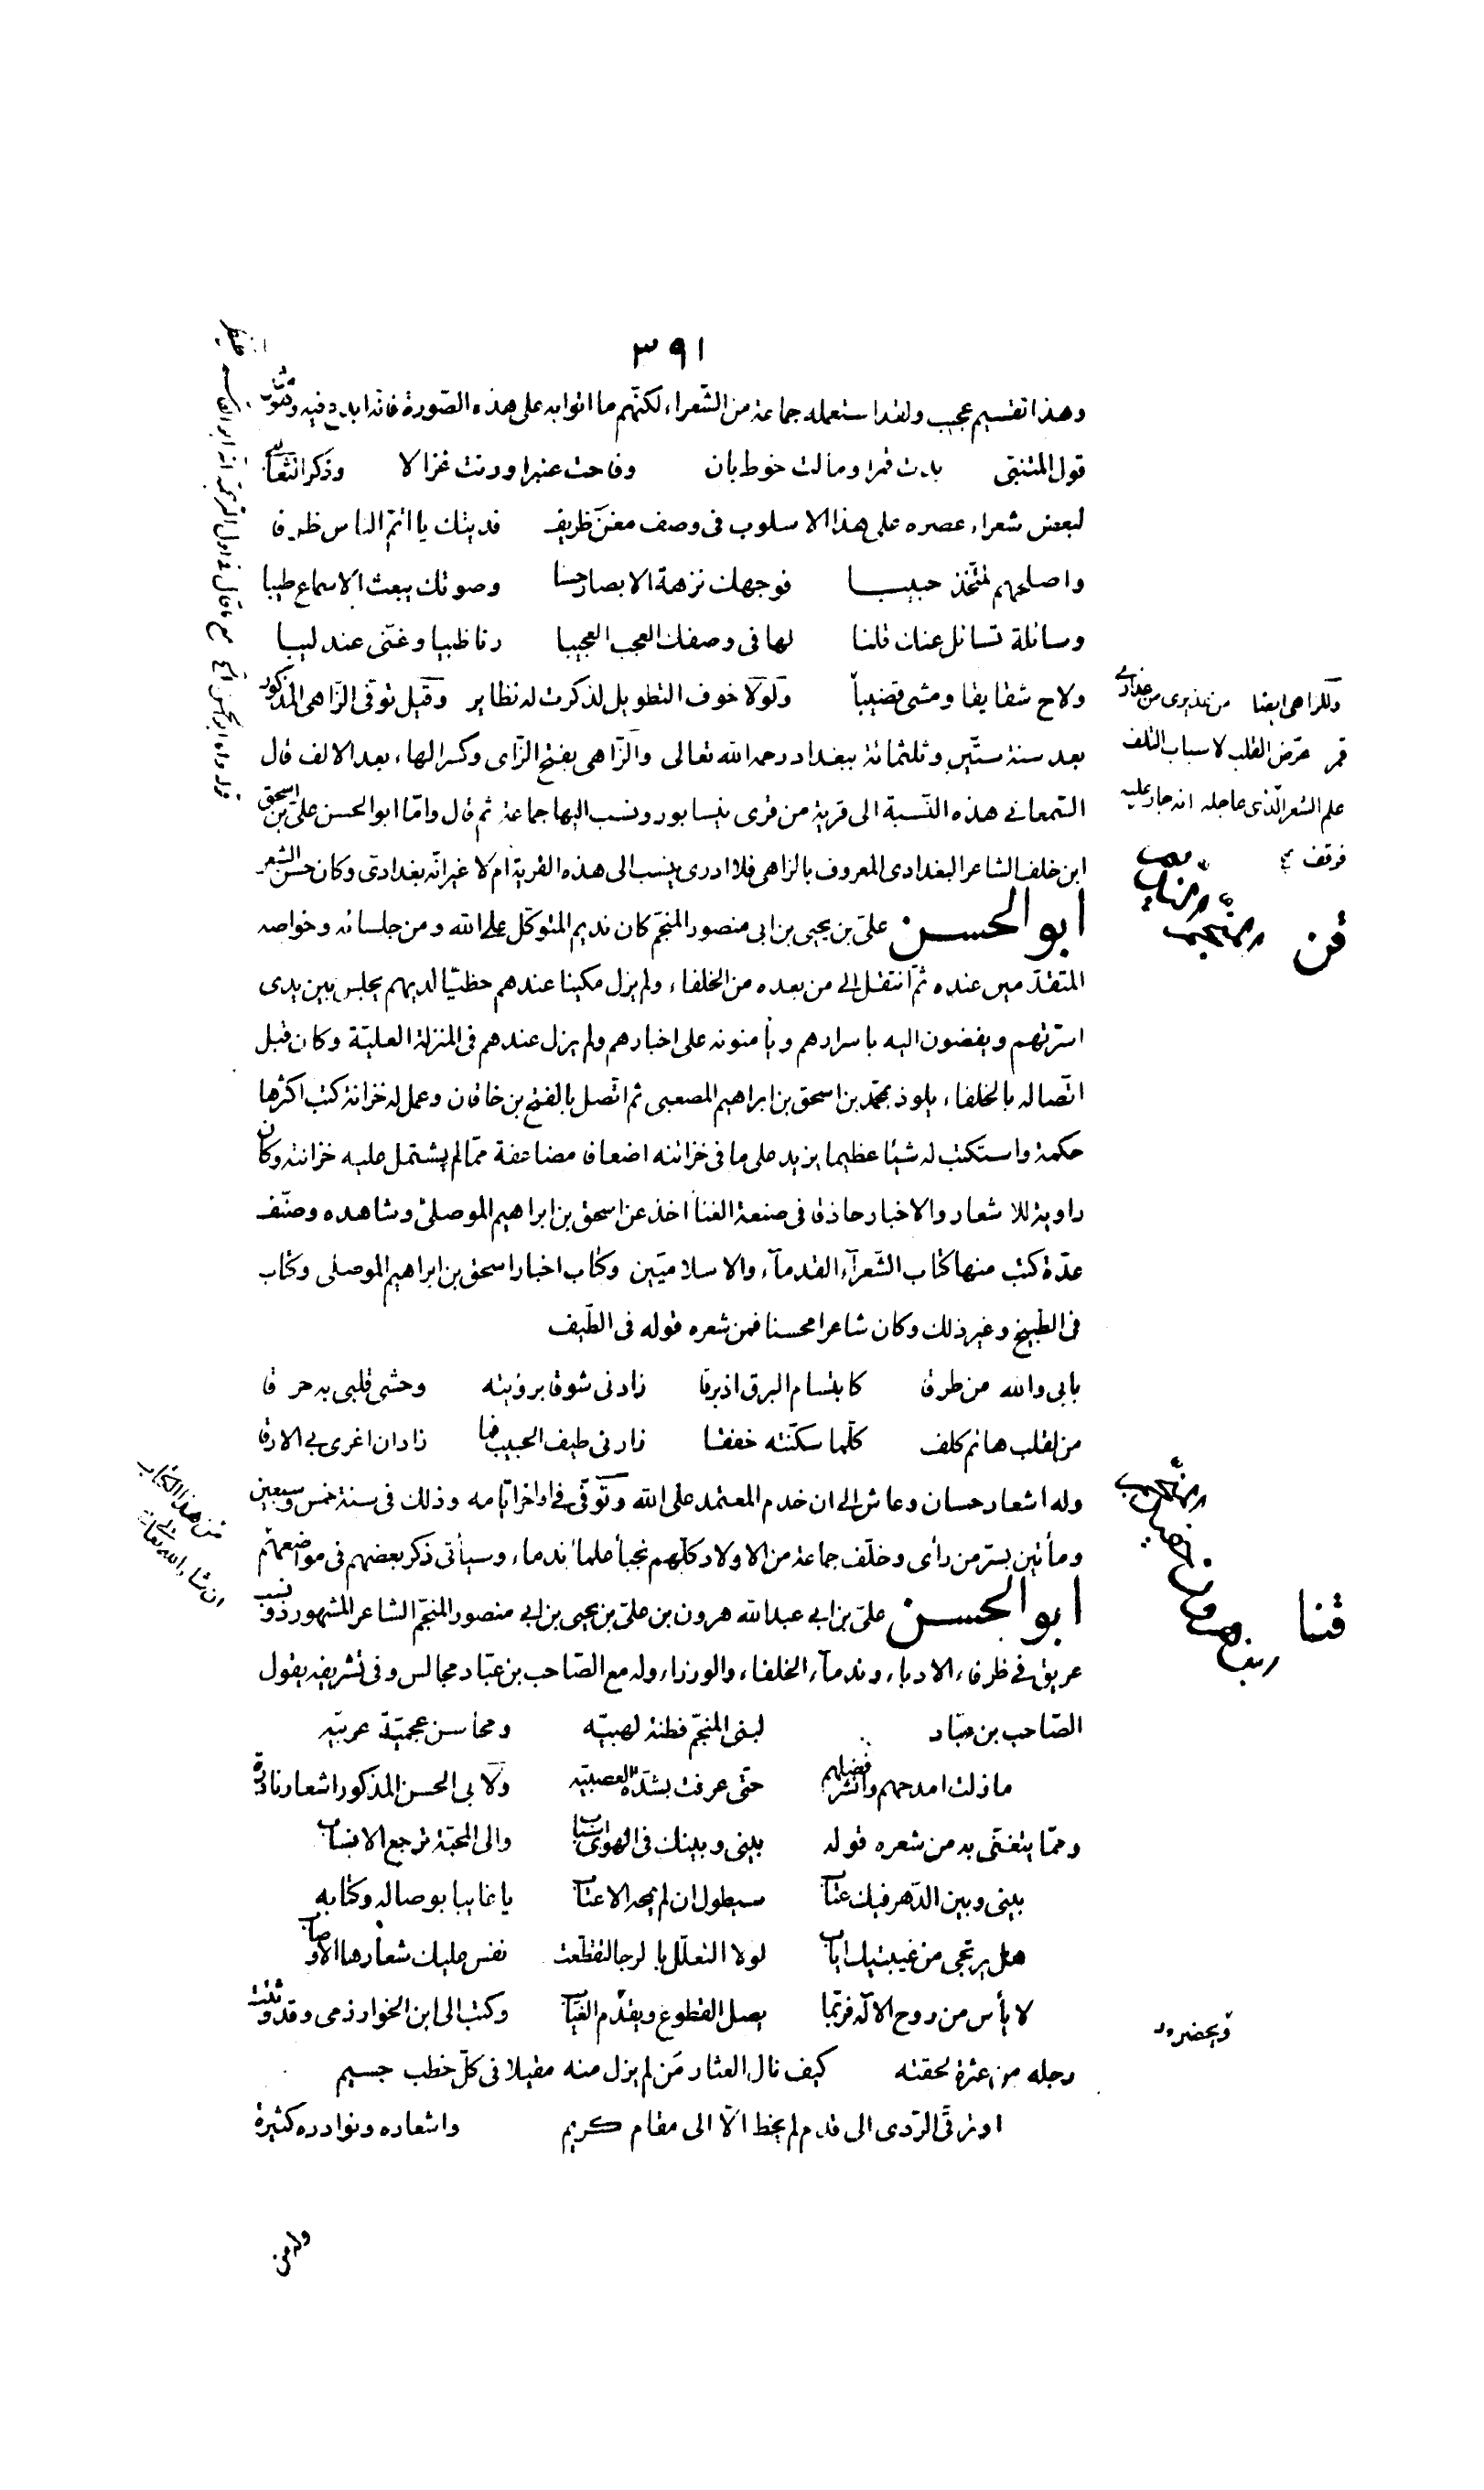 ٣٩١
وهذا تقسيم عجيب ولقد استعمله جماعة من الشّعراء لكنّهم ما اتوا به على هذه الصّورة فانّه ابدع فيه
قول المتنبّى بدت قمرا ومالت خوط بان وفاحت عنبرا ورنت غزالا وذكر الثعالبى
لبعض شعراء عصره على هذا الاسلوب فى وصف مغنّ ظريف فديتك يا اتمّ الناس ظرفا
واصلحهم لمتّخذ حبيبا فوجهك نزهة الابصار حسنا وصوتك يبعث الاسماع طيبا
وسائلة تسائل عنك قلنا لها فى وصفك العجب العجيبا رنا ظبيا وغنّى عندليبا
ولاح شقايقا ومشى قضيباً ولولا خوف التطويل لذكرت له نظاير وقيل توفّى الزّاهى المذكور
بعد سنة ستّين وثلثمائة ببغداد رحمه الله تعالى والزّاهى بفتح الزّاى وكسر الهاء بعد الالف قال
السّمعانى هذه النّسبة الى قرية من قرى نيسابور ونسب اليها جماعة ثم قال وامّا ابو الحسن علىّ بن اسحق
ابن خلف الشاعر البغدادى المعروف بالزاهى فلا ادرى ينسب الى هذه القرية ام لا غير انّه بغدادىّ وكان حسن الشعر
ابو الحسن علىّ بن يحيى بن ابى منصور المنجّم كان نديم المتوكّل على الله ومن جلسائه وخواصه
المتقدّمين عنده ثمّ انتقل الى من بعده من الخلفاء ولم يزل مكينا عندهم حظيّا لديهم يجلس بين يدى
اسرّتهم ويفضون اليه باسرارهم ويأمنونه على اخبارهم ولم يزل عندهم فى المنزلة العليّة وكان قبل
اتّصاله بالخلفاء يلوذ بمحمّد بن اسحق بن ابراهيم المصعبى ثم اتّصل بالفتح بن خاقان وعمل له خزانة كتب اكثرها
حكمة واستكتب له شيئا عظيما يزيد على ما فى خزانته اضعاف مضاعفة ممّا لم يشتمل عليه خزانته وكان
راوية للاشعار والاخبار حاذقا فى صنعة الغناء اخذ عن اسحق بن ابراهيم الموصلىّ وشاهده وصنّف
عدّة كتب منها كتاب الشّعرآء القدمآء والاسلاميّين وكتاب اخبار اسحق بن ابراهيم الموصلى وكتاب
فى الطبيخ وغير ذلك وكان شاعرا محسنا فمن شعره قوله فى الطّيف
بابى والله من طرقا كابتسام البرق اذ برقا زادنى شوقا برؤيته وحشى قلبى به حرقا
من لقلب هائم كلف كلّما سكّنته خفقا زارنى طيف الحبيب فما زاد ان اغرى بى الارقا
وله اشعار حسان وعاش الى ان خدم المعتمد على الله وتوفّى فى اواخر ايّامه وذلك فى سنة خمس وسبعين
ومأتين بسرّ من رأى وخلّف جماعة من الاولاد كلّهم نجبأ علمأ ندماء وسيأتى ذكر بعضهم فى مواضعهم
من هذا الكتاب
ان شاء الله تعالى
ابو الحسن علىّ بن ابى عبد الله هرون بن علىّ بن يحيى بن ابى منصور المنجّم الشاعر المشهور ذو نسب
عريق فى ظرفاء الادباء وندمآء الخلفاء والوزراء وله مع الصّاحب بن عبّاد مجالس وفى تشريفه يقول
الصّاحب بن عبّاد لبنى المنجّم فطنة لهبيّه ومحاسن عجميّة عربيّه
ما زلت امدحهم وانشر فضلهم حتّى عرفت بشدّة العصبيّه ولابى الحسن المذكور اشعار نادرة
وممّا يتغنّى به من شعره قوله بينى وبينك فى الهوى اسباب والى المحبّة ترجع الانساب
بينى وبين الدّهر فيك عتاب سيطول ان لم يمحه الاعتاب يا غايبا بوصاله وكتابه
هل يرتجى من غيبتيك اياب لولا التعلّل بالرجا لتقطّعت نفس عليك شعارها الاوصاب
لا يأس من روح الاله فربّما يصل القطوع ويقدم الغيّاب وكتب الى ابن الخوارزمى وقد وثئت
رجله من عثرة لحقته كيف نال العثار من لم يزل منه مقيلا فى كلّ خطب جسيم
او ترقّى الرّدى الى قدم لم يخط الاّ الى مقام كريم واشعاره ونوادره كثيرة
وللزاهى ايضا من عذيرى من عذارى
قمر عرّض القلب لاسباب التلف
علم الشعر الّذى عاجله انه جار عليه
فوقف
قن
المنجم
قنا
ويحضر
وله من